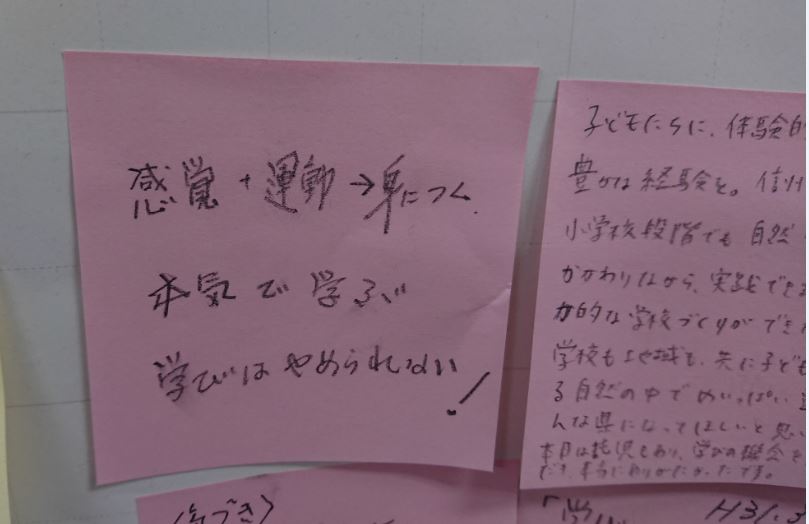 感覚+運動→身につく.
本気で学ぶ
学びはやめられない!
子どもたちに、体験的
豊かな経験を。信州
小学校段階でも自然
かかわりながら、実践でき
力的な学校づくりができ
学校も地域も、共に子ども
る自然の中でめいっぱい
んな県になってほしいと思い
本日は託児もあり、学びの概念を
でき、本当にありがたかったです。
気づき〉
H31.3